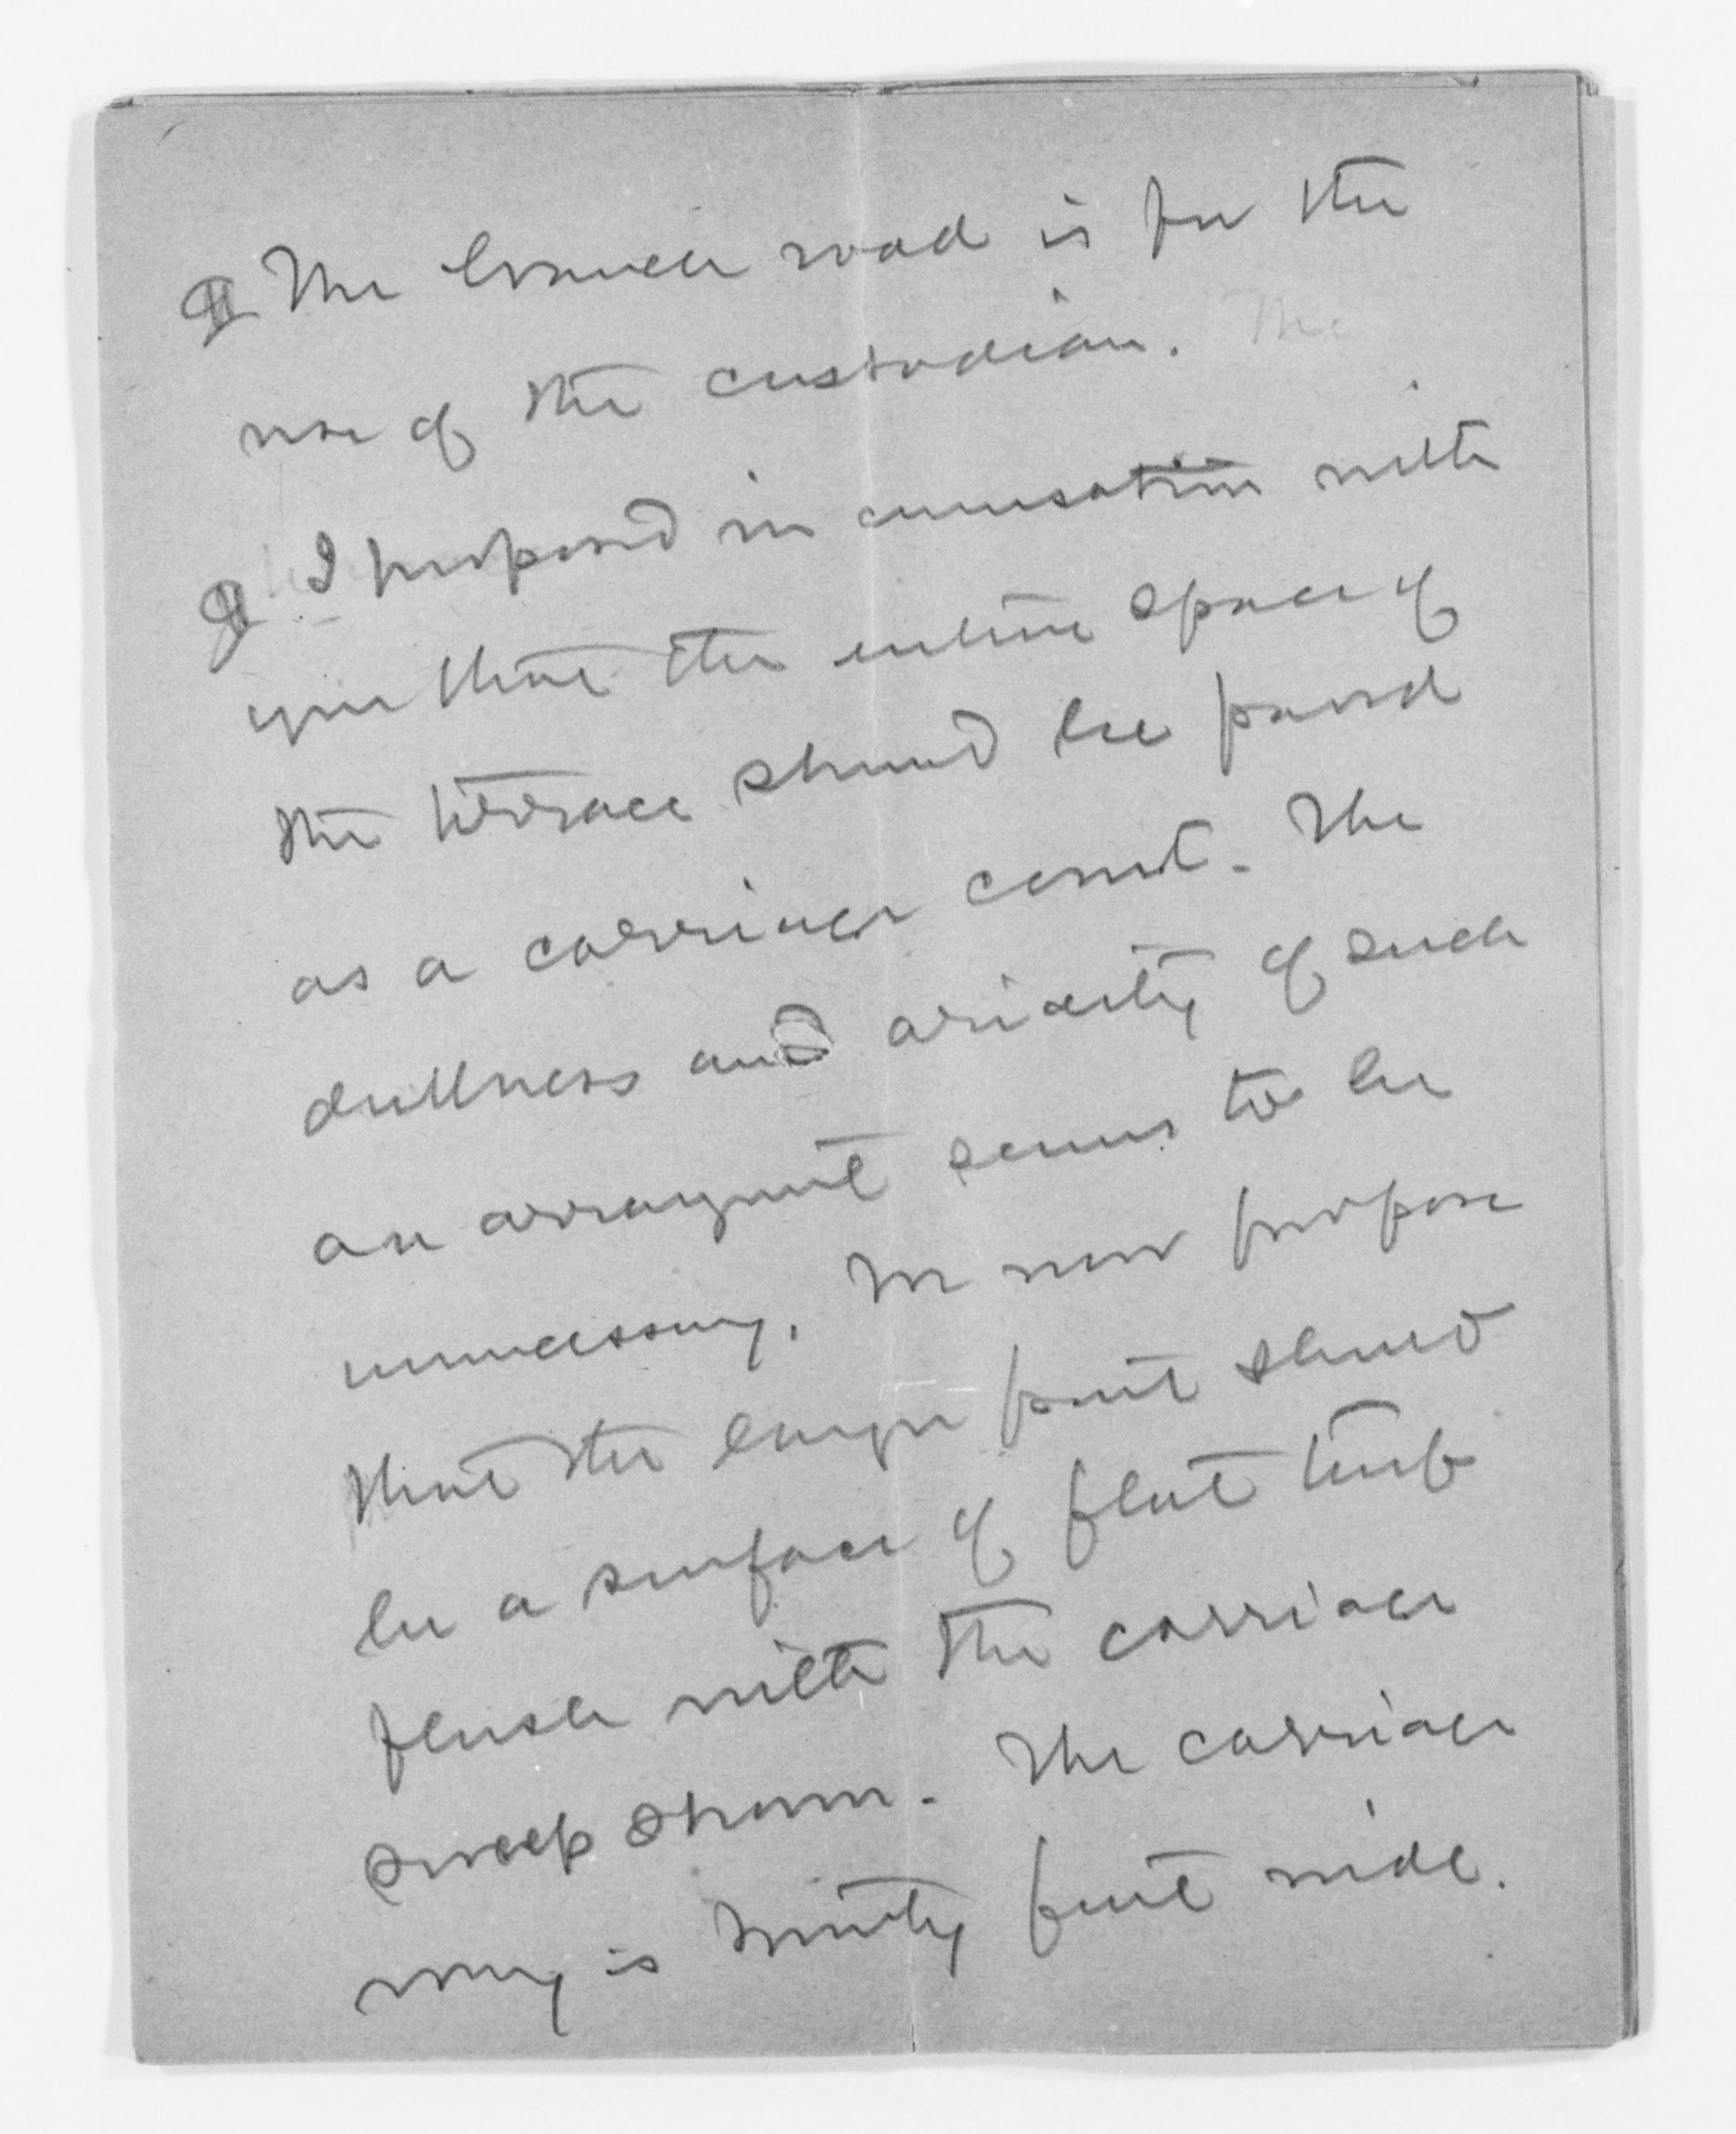 ¶ The branch road is for the
use of the custodian. The
¶ I proposed in conversation with
you that the entire space of
the terrace should be paved
as a carriage court. The
dullness and aridity of such
an arrangement seems to be
unnecessary. We now propose
that the larger part should
be a surface of flat turf
flush with the carriage
sweep shown. The carriage
way is twenty feet wide.